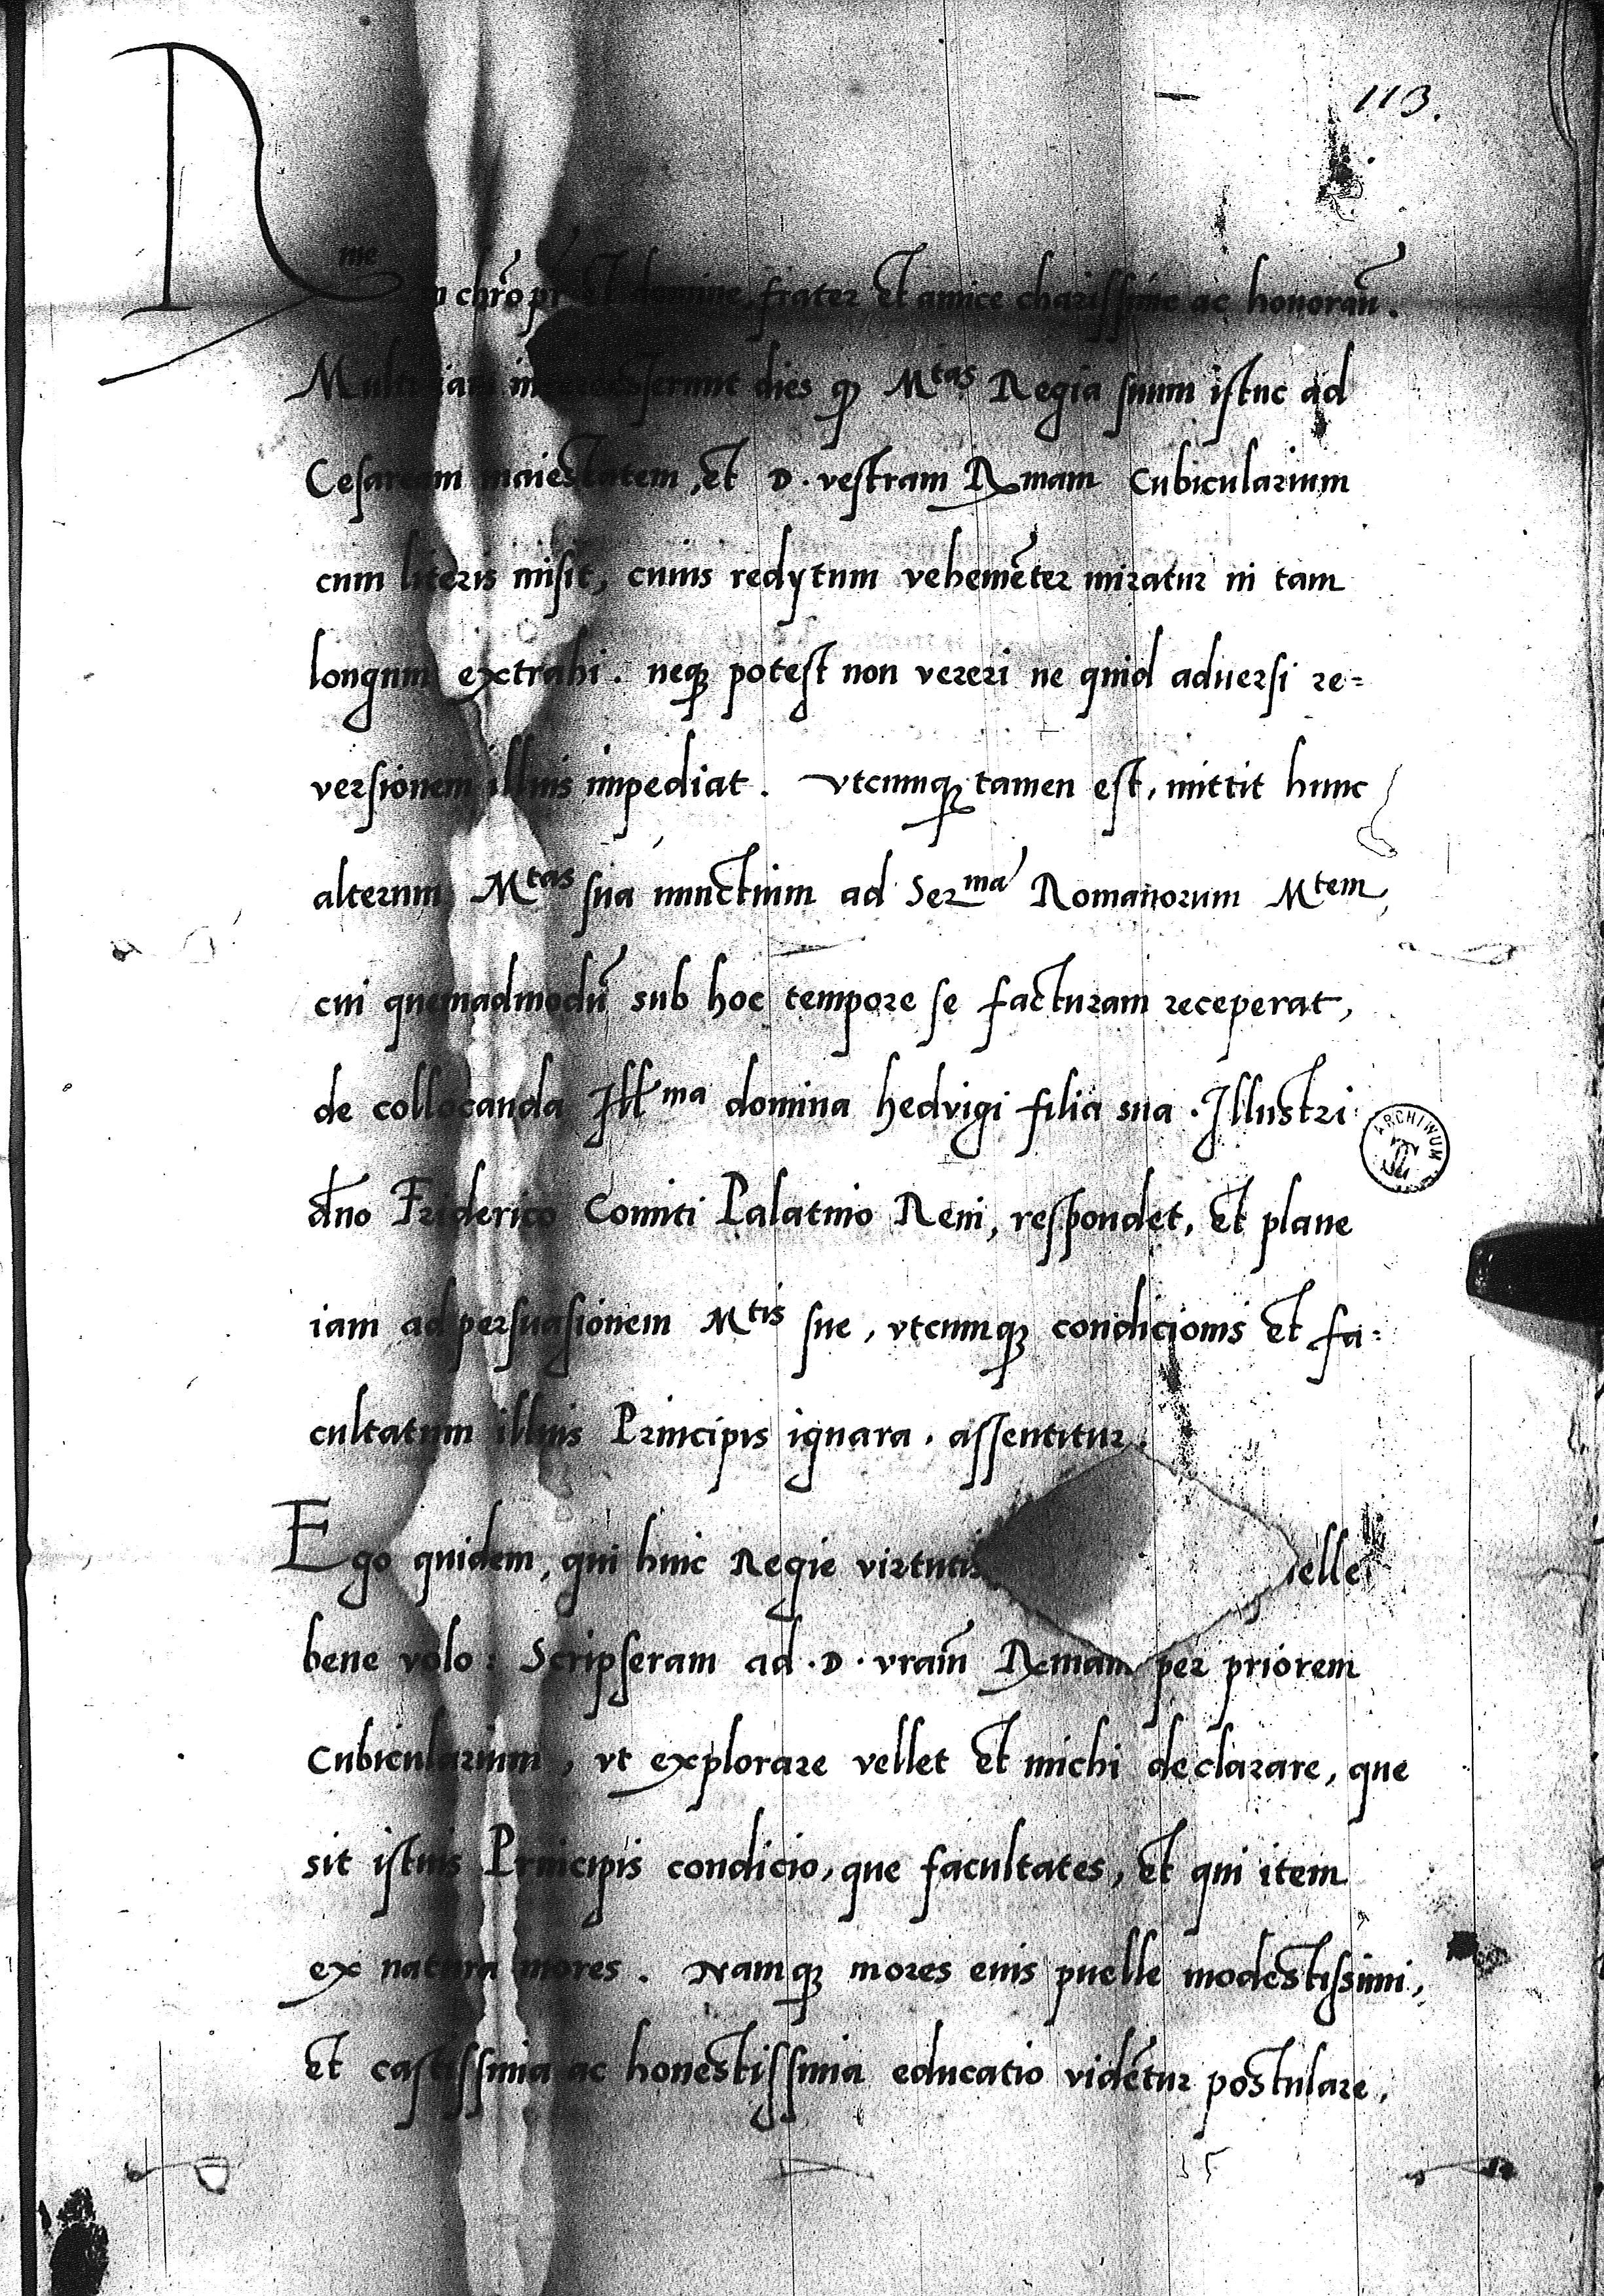 113.
R me in chr̃o pr et domine, frater et amice charissime ac honorañ.
Multi iam intercesserunt dies qȝ Mtas Regia suum istuc ad
Cesaream maiestatem, et D. vestram Rmam Cubicularium
cum literis misit, cuius redytum vehemẽter miratur in tam
longum extrahi. neqȝ potest non vereri ne quid adversi re=
versionem illius impediat. Vtcumqȝ tamen est, mittit hunc
alterum Mtas sua nunctium ad Serma Romanorum Mtem,
cui quemadmodũ sub hoc tempore se facturam receperat,
de collocanda Illma domina hedvigi filia sua. Illustri
dno Friderico Comiti Palatino Reni, respondet, et plane
iam ad persuasionem Mtis sue, vtcumqȝ condicionis et fa=
cultatum illius Principis ignara. assentitur.
Ego quidem, qui huic Regie virtutis elle
bene volo: Scripseram ad .D. vram̃ Rmam per priorem
Cubicularium, vt explorare vellet et michi declarare, que
sit istius Principis condicio, que facultates, et qui item
ex natura mores. Namqȝ mores eius puelle modestissimi,
et castissima ac honestissima educatio vidẽtur postulare,
ARCHIWUM